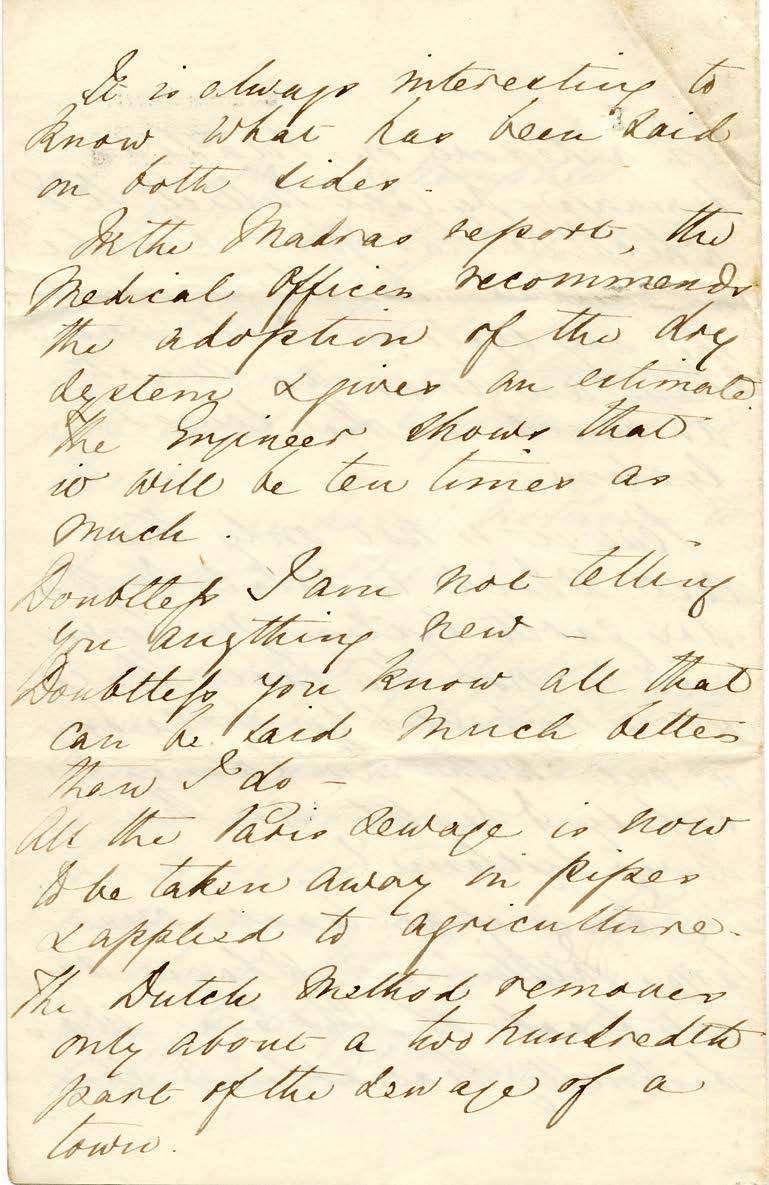 It is always interesting to
know what has been said
on both sides.
In the Madras report, the
Medical Officer recommends
the adoption of the dry
system & gives an estimate
The Engineer shows that
it will be ten times as
much.
Doubtless I am not telling
you anything new -
Doubtless you know all that
can be said much better
than I do -
All the Paris Sewage is now
to be taken away in pipes
& applied to agriculture.
The Dutch Method removes
only about a two hundredth
part of the sewage of a
town.